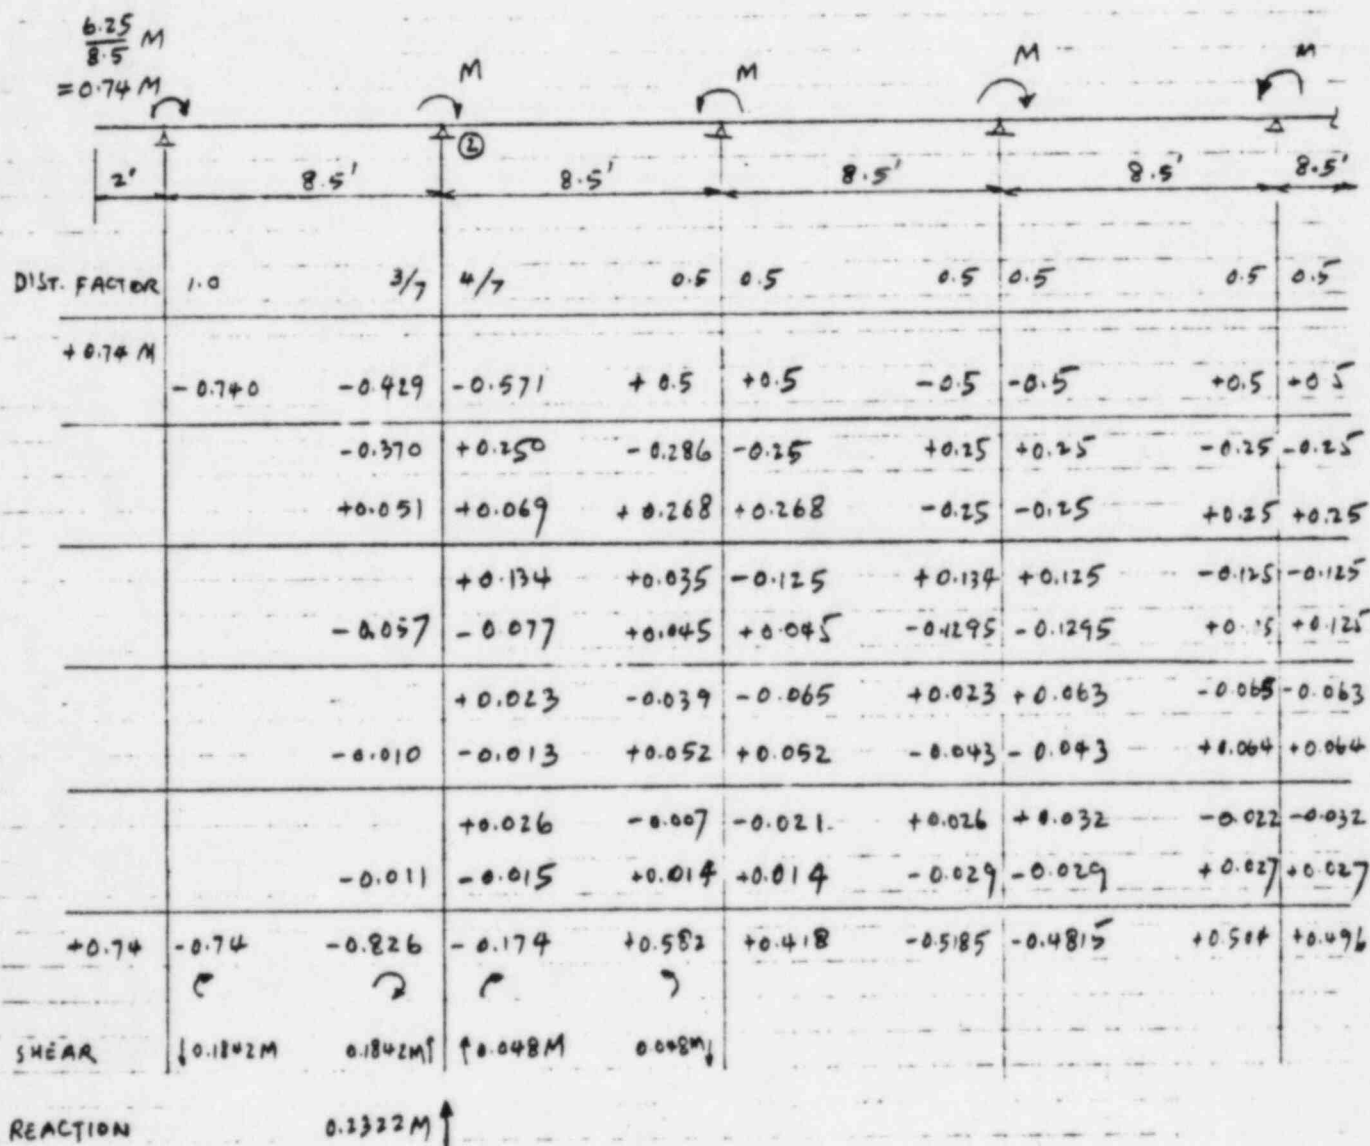 6.25
8.5 M
= 0.74 M
M M M M
②
2' 8.5' 8.5' 8.5' 8.5' 8.5'
DIST. FACTOR 1.0 3/7 4/7 0.5 0.5 0.5 0.5 0.5 0.5
+0.74 M
-0.740 -0.429 -0.571 +0.5 +0.5 -0.5 -0.5 +0.5 +0.5
-0.370 +0.250 -0.286 -0.25 +0.25 +0.25 -0.25 -0.25
+0.051 +0.069 +0.268 +0.268 -0.25 -0.25 +0.25 +0.25
+0.134 +0.035 -0.125 +0.134 +0.125 -0.125 -0.125
-0.057 -0.077 +0.045 +0.045 -0.1295 -0.1295 +0.125
+0.023 -0.039 -0.065 +0.023 +0.063 -0.065 -0.063
-0.010 -0.013 +0.052 +0.052 -0.043 -0.043 +0.064 +0.064
+0.026 -0.007 -0.021 +0.026 +0.032 -0.022 -0.032
-0.011 -0.015 +0.014 +0.014 -0.029 -0.029 +0.027 +0.027
+0.74 -0.74 -0.826 -0.174 +0.582 +0.418 -0.5185 -0.4815 +0.504 +0.496
SHEAR ↓0.1842M 0.1842M↑ ↑0.048M 0.048M↓
REACTION 0.2322M↑